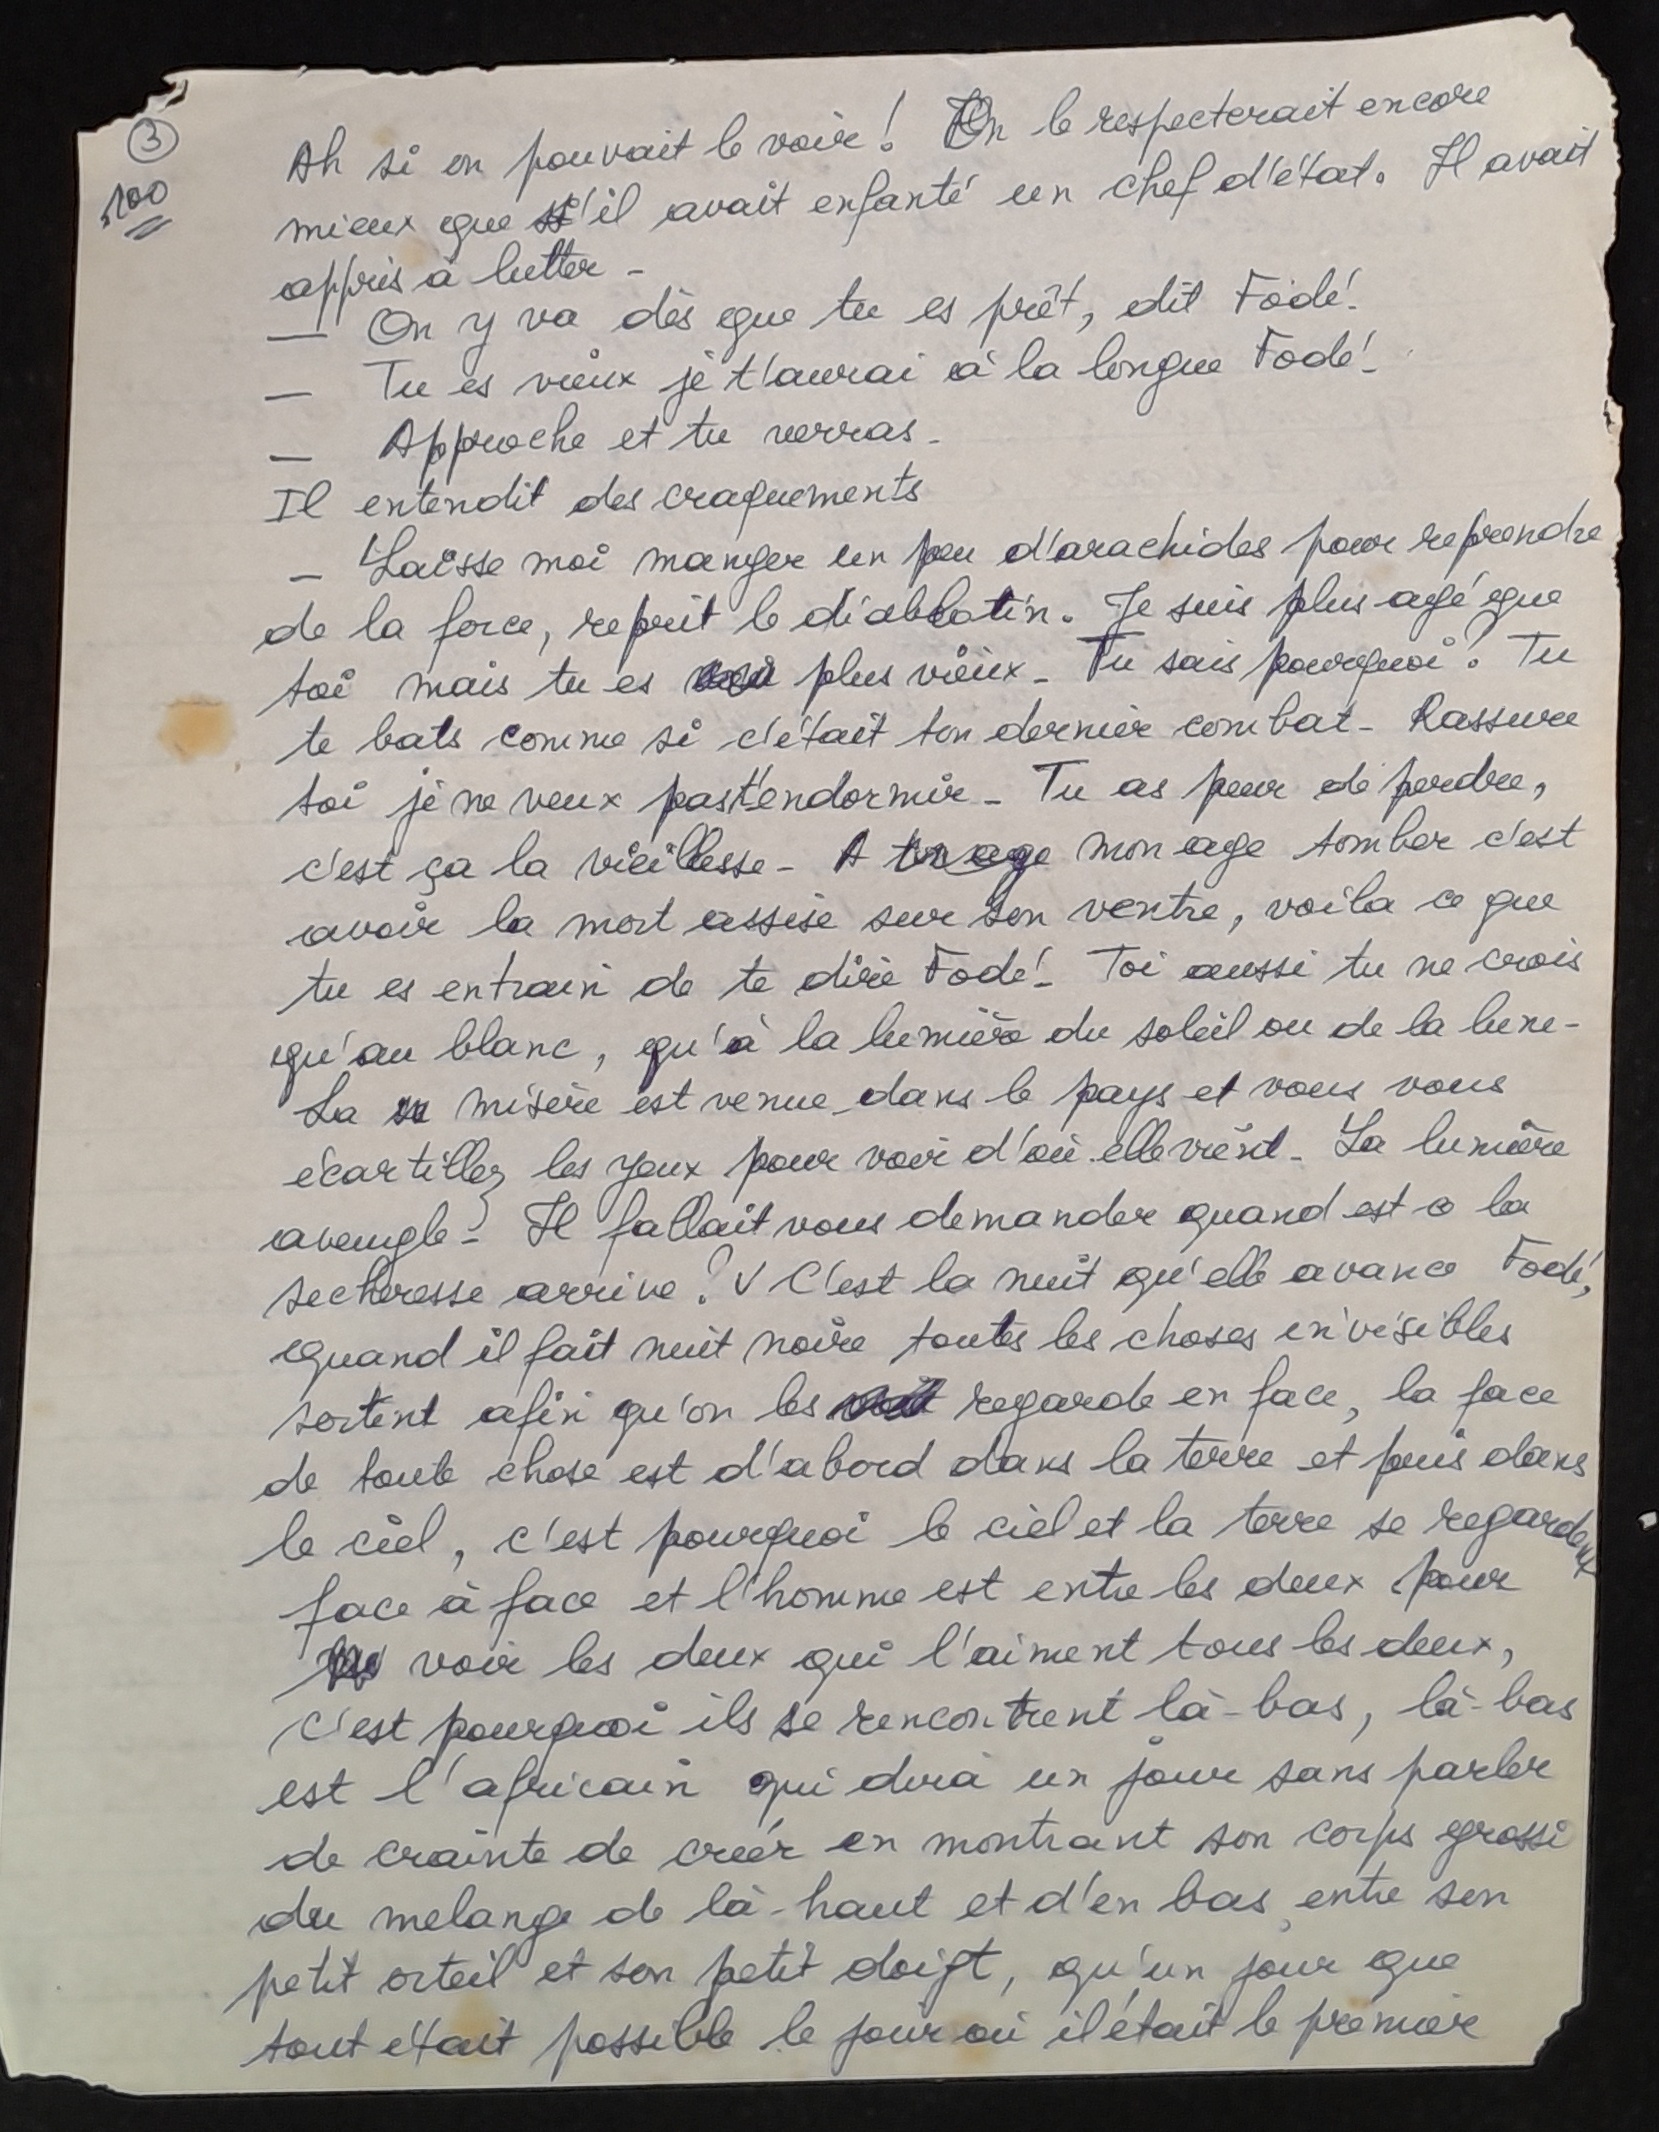 3
100
Ah si on pouvait le voir ! On le respecterait encore
mieux que s'il avait enfanté un chef d'état. Il avait
appris à lutter -
— On y va dès que tu es prêt, dit Fodé.
— Tu es vieux je t'aurai à la longue Fodé.
— Approche et tu verras.
Il entendit des craquements
— Laisse moi manger un peu d'arachides pour reprendre
de la force, reprit le diablotin. Je suis plus agé que
toi mais tu es plus vieux - Tu sais pourquoi ? Tu
te bats comme si c'était ton dernier combat - Rassure
toi je ne veux pas t'endormir - Tu as peur de perdre,
c'est ça la vieillesse - A mon age tomber c'est
avoir la mort assise sur son ventre, voila ce que
tu es entrain de te dire Fodé. Toi aussi tu ne crois
qu'au blanc, qu'à la lumière du soleil ou de la lune -
La misère est venue dans le pays et vous vous
écartillez les yeux pour voir d'où elle vient - La lumière
aveugle - Il fallait vous demander quand est ce la
secheresse arrive ? V C'est la nuit qu'elle avance Fodé,
quand il fait nuit noire toutes les choses invisibles
sortent afin qu'on les regarde en face, la face
de toute chose est d'abord dans la terre et puis dans
le ciel, c'est pourquoi le ciel et la terre se regardent
face à face et l'homme est entre les deux pour
voir les deux qui l'aiment tous les deux,
c'est pourquoi ils se rencontrent là-bas, là-bas
est l'africain qui dira un jour sans parler
de crainte de créer en montrant son corps grossi
du melange de là-haut et d'en bas, entre son
petit orteil et son petit doigt, qu'un jour que
tout était possible le jour où il était le premier